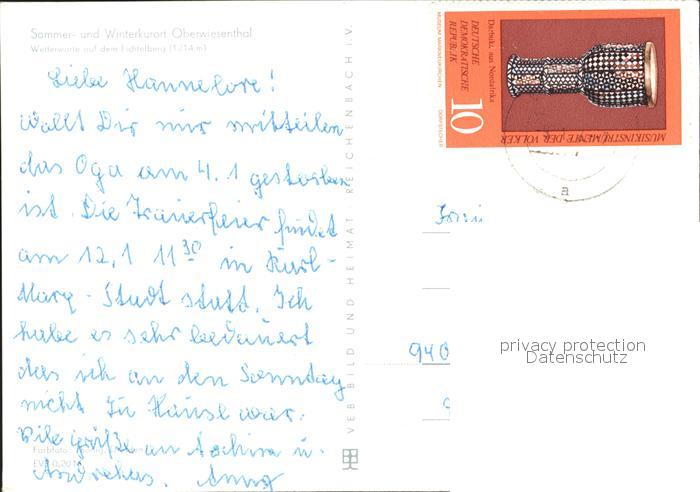 Sommer- und Winterkurort Oberwiesenthal
Wetterwarte auf dem Fichtelberg (1214 m)
Liebe Hannelore!
Wollt Dir nur mitteilen
das Oga am 4. 1 gestorben
ist. Die Trauerfeier findet
am 12.1 11 30 in Karl-
Marx-Stadt statt. Ich
habe es sehr bedauert
das ich an den Sonntag
nicht zu Hause war.
Viele Grüße an Achim u.
Andreas.
Farbfoto:
VEB BILD UND HEIMAT REICHENBACH i. V.
MUSEUM MARKNEUKIRCHEN
DORFSTECHER
10
DEUTSCHE
DEMOKRATISCHE
REPUBLIK
Darbuka, aus Nordafrika
MUSIKINSTRUMENTE DER VÖLKER
a
Frau
940
privacy protection
Datenschutz